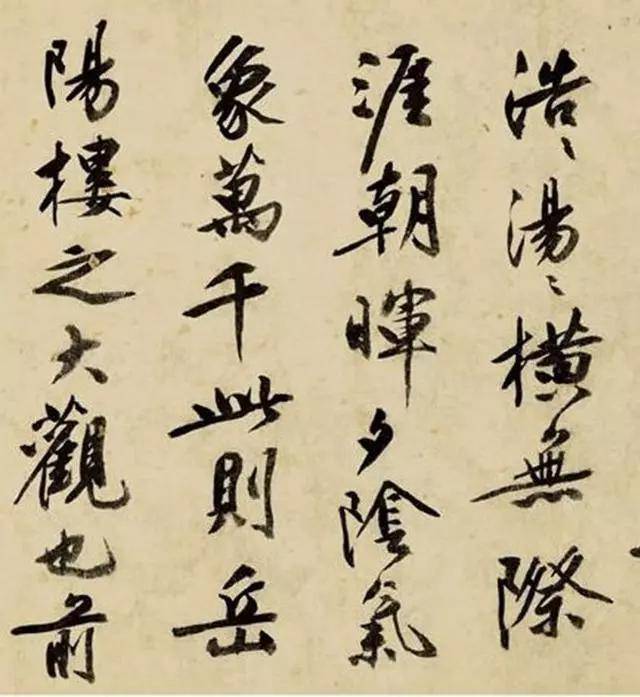 浩〻湯〻橫無際
涯朝暉夕陰氣
象萬千此則岳
陽樓之大觀也前